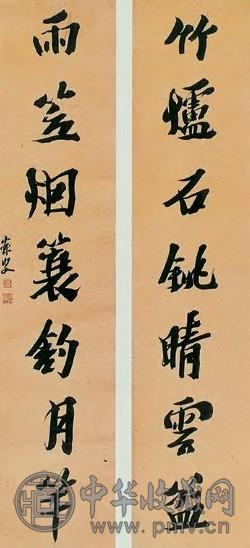 竹爐石銚晴雲
雨笠烟蓑釣月竿
中华收藏网
www.pmv.cn